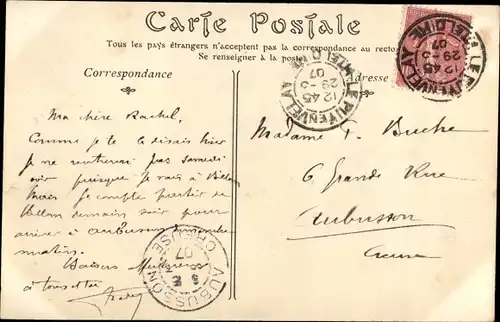 Carte Postale
Tous les pays étrangers n'acceptent pas la correspondance au recto
Se renseigner à la poste
Correspondance
Adresse
LE PUY-EN-VELAY
12 45
29 -3
07
Ma chère Rachel,
Comme je te le disais hier
je ne rentrerai pas samedi
soir puisque je vais à
Mais je compte partir de
demain soir pour
arriver à Aubusson dimanche
matin.
Baisers
à tous
Madame F. Buche
6 Grande Rue
Aubusson
Creuse
AUBUSSON
CREUSE
07